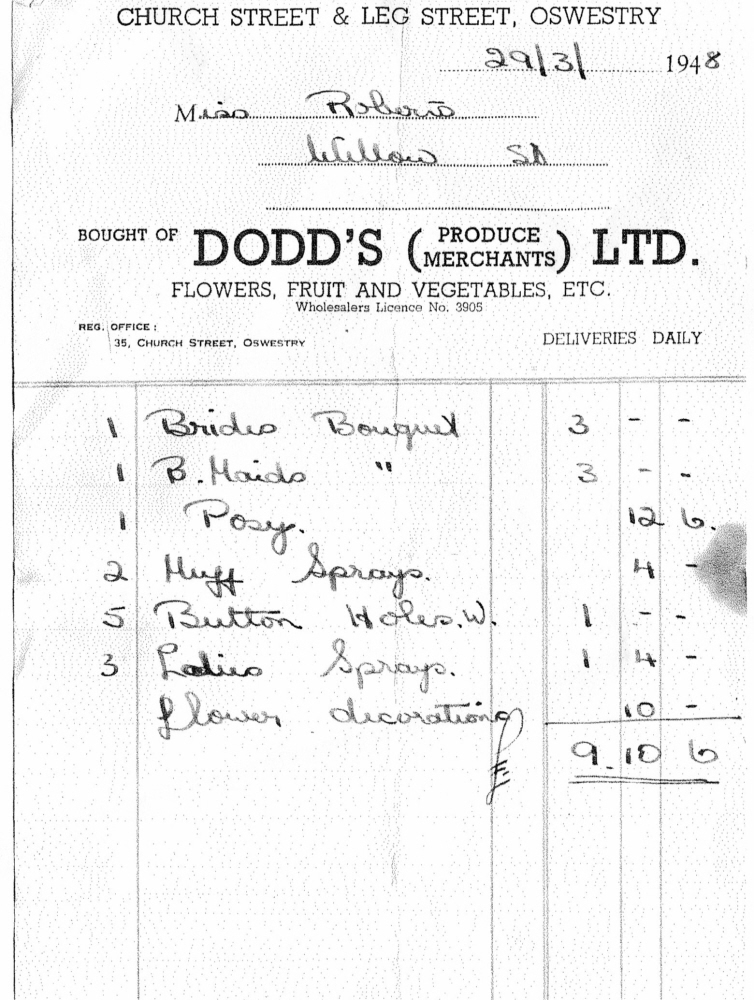 CHURCH STREET & LEG STREET, OSWESTRY
29/3/ 1948
Miss Roberts
Willow St
BOUGHT OF DODD'S (PRODUCE MERCHANTS) LTD.
FLOWERS, FRUIT AND VEGETABLES, ETC.
Wholesalers Licence No. 3905
REG. OFFICE:
35, CHURCH STREET, OSWESTRY DELIVERIES DAILY
1 Brides Bouquet 3 - -
1 B. Maids " 3 - -
1 Posy. 12 6.
2 Muff Sprays. 4 -
5 Button Holes. W. 1 - -
3 Ladies Sprays. 1 4 -
flower decorations 10 -
9. 10 6